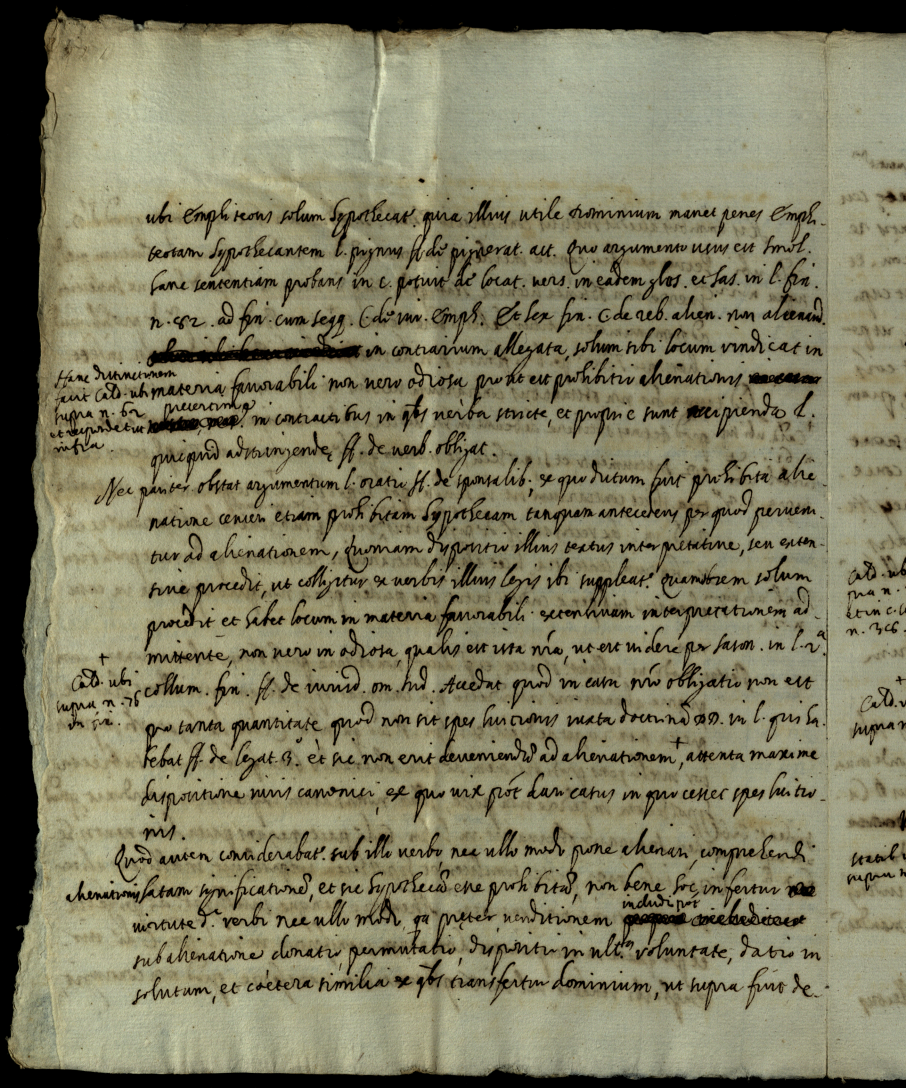 ubi Emphiteosis solum hypothecat.r quia illius utile dominium manet penes Emphi-
teotam hypothecantem l. pignus ff. de pignerat. act. Quo argumento usus est Imol.
hanc sententiam probans in c. potuit de locat. vers. in eadem glos. et Jas. in l. fin.
n. 82. ad fin. cum seqq. C. de iur. Emph. Et lex fin. C. de reb. alien. non alienand.
in contrarium allegata, solum sibi locum vindicat in
Hanc distinctionem
facit Cald. ubi
supra n. 62
et respondetur
infra.
materia favorabili non vero odiosa prout est prohibitio alienationis
presertim
in contractibus in qbs verba stricte, et proprie sunt accipienda l.
quicquid adstringendę ff. de verb. obligat.
Nec pariter obstat argumentum l. oratio ff. de sponsalib., ex quo dictum fuit prohibita alie-
natione censeri etiam prohibitam hypothecam tanquam antecedens per quod perveni-
tur ad alienationem, Quoniam dispositio illius textus interpretative, seu exten-
sive procedit, ut colligitur ex verbis illius legis ibi suppleat.r Quamobrem solum
procedit et habet locum in materia favorabili extensivam interpretationem ad-
mittente, non vero in odiosa, qualis est ista nrã, ut est videre per Jason. in l. 2.ª
+
Cald. ubi
supra n. 76
in fin.
collum. fin. ff. de iurisd. om. Iud. Accedat quod in casu nrõ obligatio non est
pro tanta quantitate quod non sit spes luicionis iuxta doctrinã DD. in l. quis ha-
bebat ff. de legat. 3.º et sic non erit deveniendũ ad alienationem+, attenta maxime
dispositione iuris canonici, ex quo vix põt dari casus in quo cesset spes luitio-
nis.
Quod autem considerabat.r sub illo verbo, nec ullo modo posse alienari, comprehendi
alienationis latam significationẽ, et sic hypothecã esse prohibitã, non bene hoc infertur
virtute d.i verbi nec ullo modo, qa pręter venditionem
includi põt
sub alienatione donatio, permutatio, dispositio in ult.ª voluntate, datio in
solutum, et coetera similia ex qbs transfertur dominium, ut supra fuit de-
Cald. ub
pra n.
et in c.
n. 36.
+
Cald. u
supra n
supra n